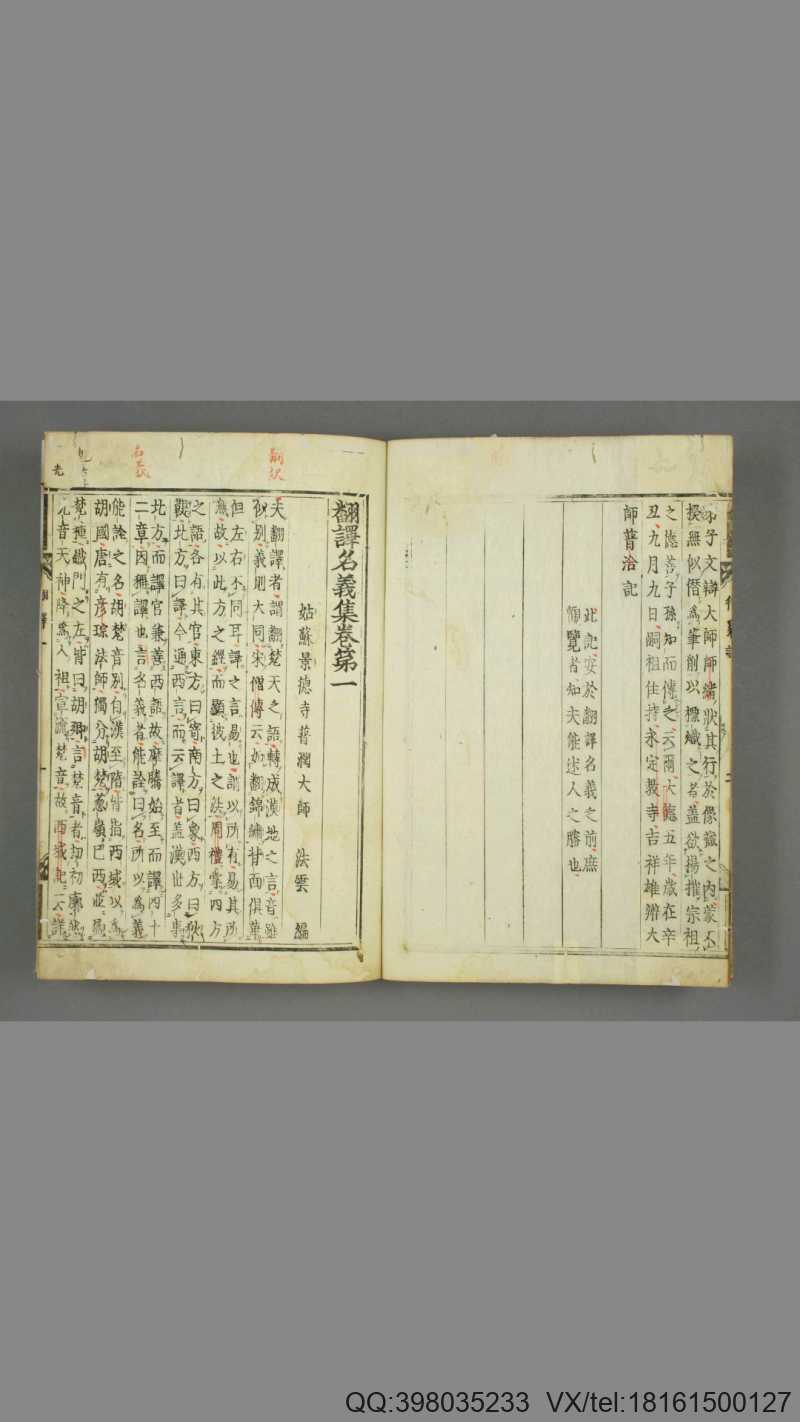 子文辯大師師緒狀其行於像嶽之內蒙不
揆無似僭爲筆削以標幟之者蓋欲揚摧宗祖
之德善子孫知而傳之云爾大德五年歲在辛
丑九月九日嗣祖住持永定教寺吉祥雄辯大
師普洽記
此記安於翻譯名義之前庶
覽者知夫能述人之勝也
翻譯名義集卷第一
姑蘇景德寺普潤大師 法雲 編
夫翻譯者謂翻梵天之語轉成漢地之言音雖
似別義則大同宋僧傳云如翻錦繡背面俱華
但左右不同耳譯之言易也謂以所有易其所
無故以此方之經而顯彼土之法周禮掌四方
之語各有其官東方曰寄南方曰象西方曰狄
鞮北方曰譯今通西言而云譯者蓋漢世多事
北方而譯官兼善西語故摩騰始至而譯四十
二章因稱譯也言名義者能詮曰名所以爲義
能詮之名胡梵音別自漢至隋皆指西域以爲
胡國唐有彥琮法師獨分胡梵葱嶺巴西並爲
梵種鐵門之左皆曰胡鄉言梵音者劫初廓然
光音天神降爲人祖宣流梵音故西域記云詳
翻訳
名義
QQ:398035233 VX/tel:18161500127